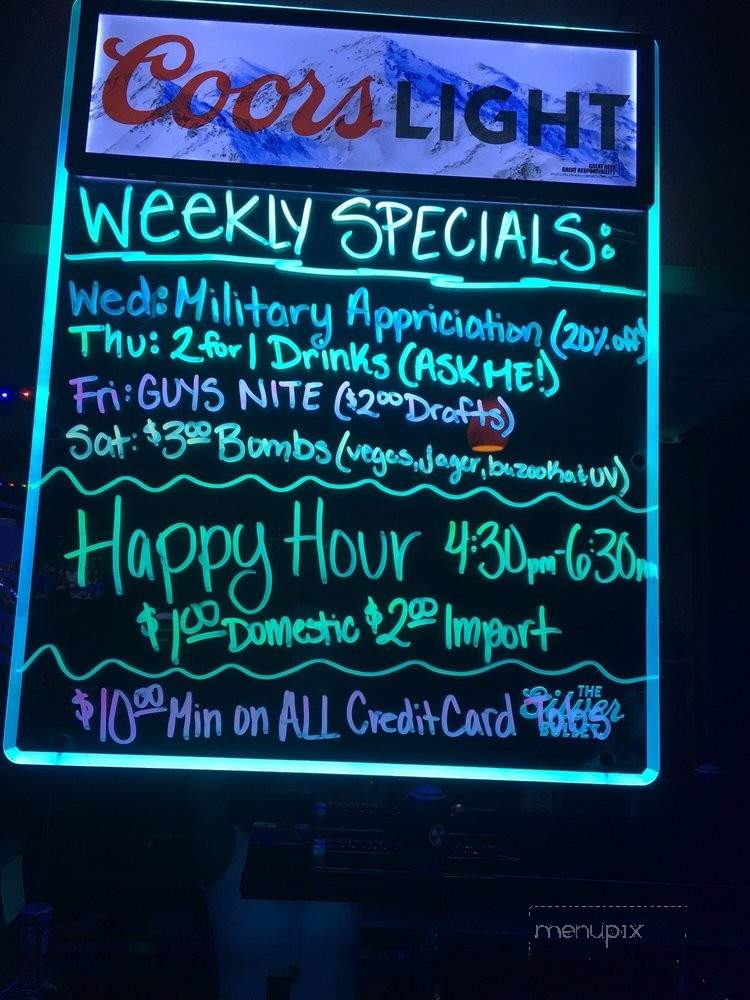 Coors LIGHT
GREAT BEER
GREAT RESPONSIBILITY
WeeKLY SPECIALS:
Wed: Military Appriciation (20% off)
Thu: 2 for 1 Drinks (ASK ME!)
Fri: GUYS NITE ($2⁰⁰ Drafts)
Sat: $3⁰⁰ Bombs (vegas, Jager, bazooka & UV)
Happy Hour 4:30pm-6:30pm
$1⁰⁰ Domestic $2⁰⁰ Import
$10⁰⁰ Min on ALL Credit Card Tabs
THE
Silver
BULLET
menupix